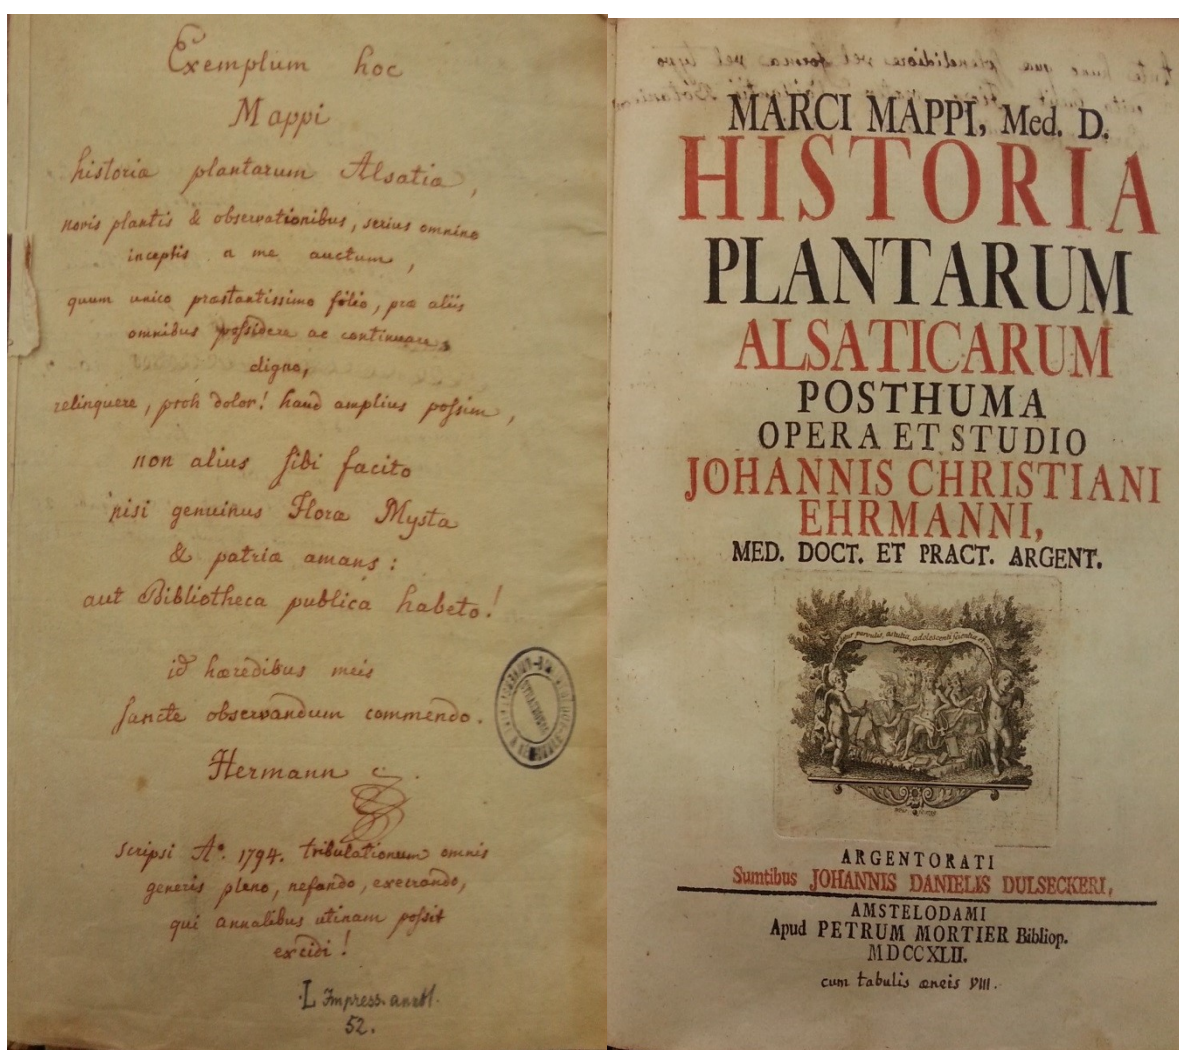 Exemplum hoc
Mappi
historiæ plantarum Alsatiæ,
novis plantis & observationibus, serius omnino
inceptis a me auctum,
quum unico præstantissimo filio, præ aliis
omnibus possidere ac continuare
digno,
relinquere, proh dolor! haud amplius possim,
non alius sibi facito
nisi genuinus Floræ Mysta
& patriæ amans:
aut Bibliotheca publica habeto!
id hæredibus meis
sancte observandum commendo.
Hermann
scripsi Aº. 1794. tribulationum omnis
generis pleno, nefando, execrando,
qui annalibus utinam possit
excidi!
L Impress.
52.
MARCI MAPPI, Med. D.
HISTORIA
PLANTARUM
ALSATICARUM
POSTHUMA
OPERA ET STUDIO
JOHANNIS CHRISTIANI
EHRMANNI,
MED. DOCT. ET PRACT. ARGENT.
parvulis, astutia, adolescenti scientia et
ARGENTORATI
Sumtibus JOHANNIS DANIELIS DULSECKERI,
AMSTELODAMI
Apud PETRUM MORTIER Bibliop.
MDCCXLII.
cum tabulis æneis VIII.